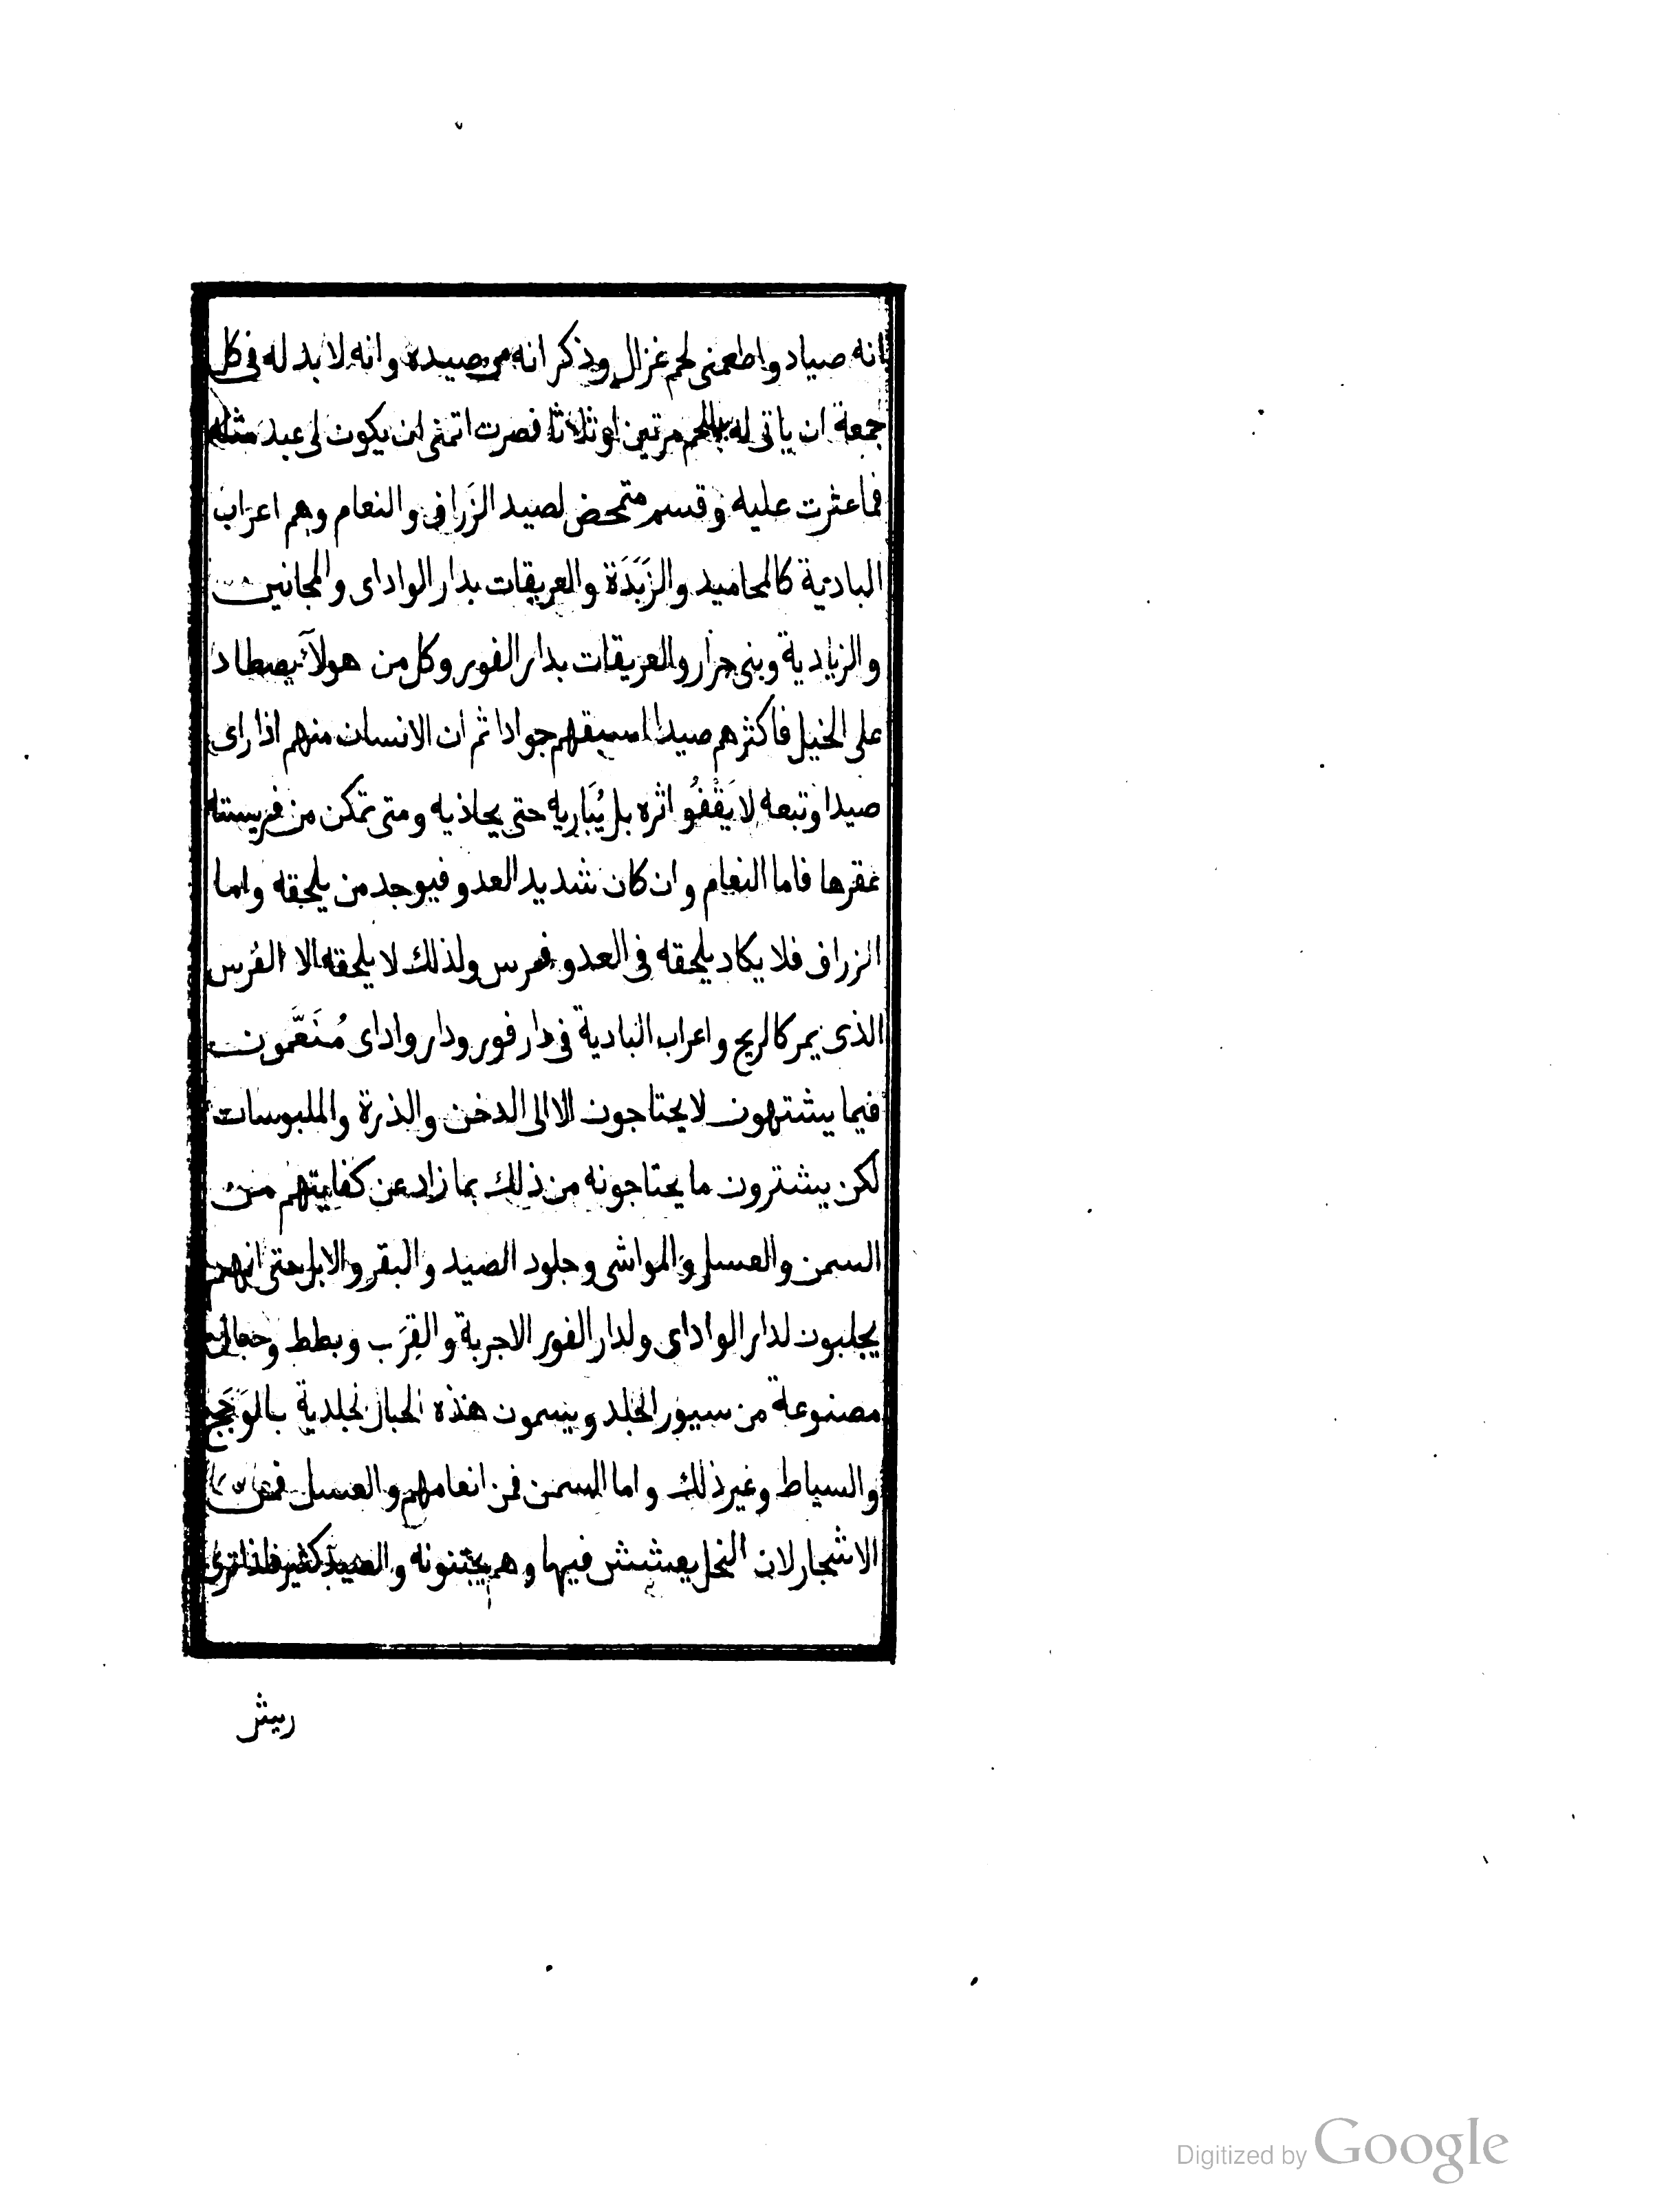 بانه صياد واطعمنى لحم غزال وذكر انه من صيده وانه لا بد له فى كل
جمعة ان ياتى له باللحم مرتين او ثلاثا فصرت اتمنى ان يكون لى عبد مثله
فما عثرت عليه وقسم متمحض لصيد الزَرافى والنعام وهم اعراب
البادية كالمحاميد والزَبَدَة والعريقات بدار الواداى والمجانين
والزيادية وبنى جرار والعريقات بدار الفور وكل من هولآء يصطاد
على الخيل فاكثرهم صيدا اسبقهم جوادا ثم ان الانسان منهم اذا راى
صيدا وتبعه لا يَقْفُو اثره بل يُبَاريه حتى يحاذيه ومتى تمكن من فريسته
عقرها فاما النعام وان كان شديد العدو فيوجد من يلحقه واما
الزراف فلا يكاد يلحقه فى العدو فرس ولذلك لا يلحقه الا الفرس
الذى يمر كالريح واعراب البادية فى دار فور ودار واداى مُنَعَّمون
فيما يشتهون لا يحتاجون الا الى الدخن والذرة والملبوسات
لكن يشترون ما يحتاجونه من ذلك بما زاد عن كفايتهم من
السمن والعسل والمواشى وجلود الصيد والبقر والابل حتى انهم
يجلبون لدار الواداى ولدار الفور الاجربة والقِرَب وبطط وحبال
مصنوعة من سيور الجلد ويسمون هذه الحبال الجلدية بالوَجَج
والسياط وغير ذلك واما السمن فمن انعامهم والعسل فمن
الاشجار لان النحل يعشش فيها وهم يجتنونه والصيد كثير فلذا ترى
ريش
Digitized by Google